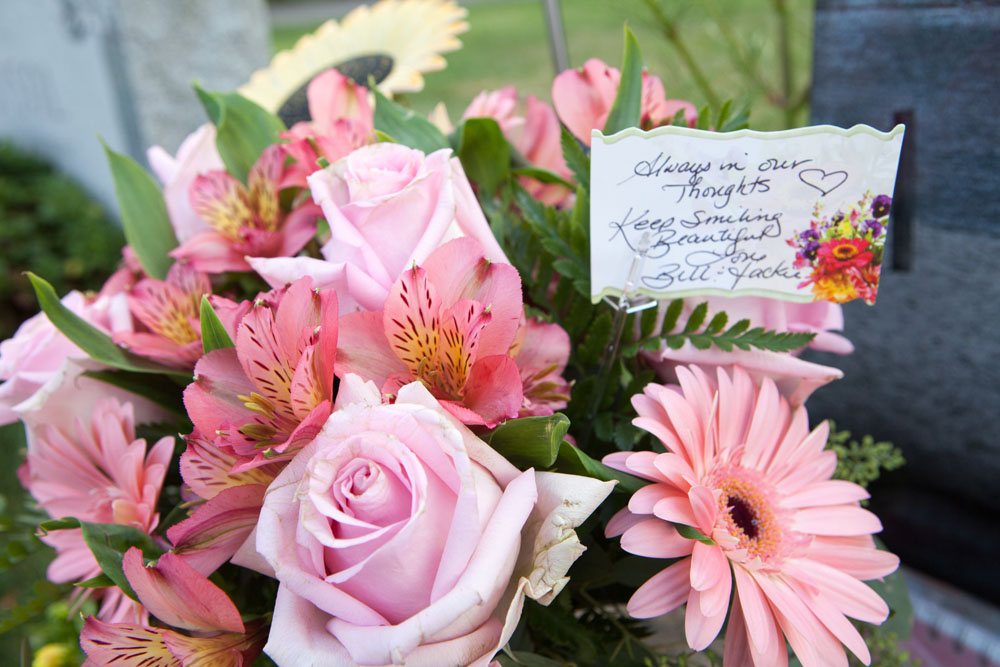 Always in our
Thoughts
Keep Smiling
Beautiful
Love
Bill & Jackie